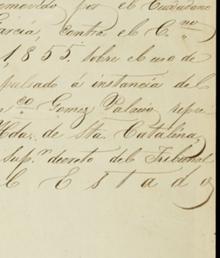 removido por el Ciudadano
García, contra el C.no
1,855. sobre el uso de
pulsado á instancia del
co Gomez Palacio, repre
Hda. de Sta. Catalina,
Supr. decreto del Tribunal
Estado